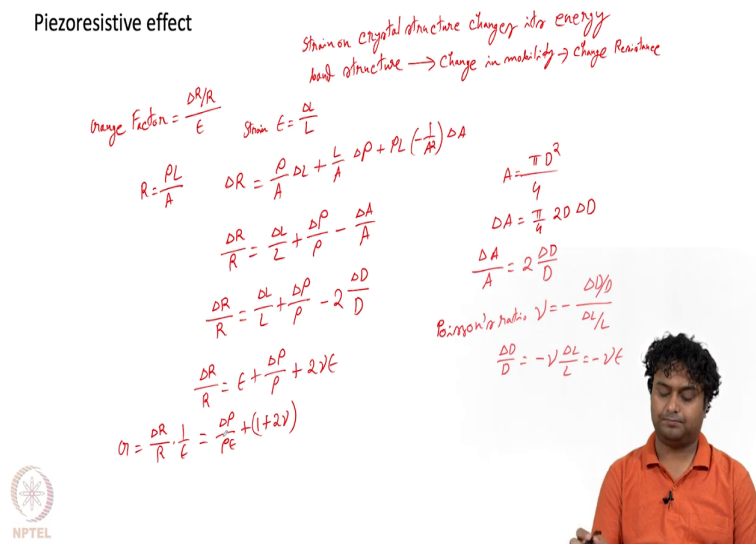 Piezoresistive effect
Strain on crystal structure changes its energy
band structure → Change in mobility → Change Resistance
Gauge Factor = (ΔR/R)/ϵ
Strain ϵ = ΔL/L
R = ρL/A
ΔR = ρ/A ΔL + L/A Δρ + ρL (-1/A²) ΔA
ΔR/R = ΔL/L + Δρ/ρ - ΔA/A
ΔR/R = ΔL/L + Δρ/ρ - 2 ΔD/D
ΔR/R = ϵ + Δρ/ρ + 2νϵ
G = ΔR/R · 1/ϵ = Δρ/ρϵ + (1+2ν)
A = πD²/4
ΔA = π/4 2D ΔD
ΔA/A = 2 ΔD/D
Poisson's ratio ν = - (ΔD/D)/(ΔL/L)
ΔD/D = -ν ΔL/L = -νϵ
NPTEL